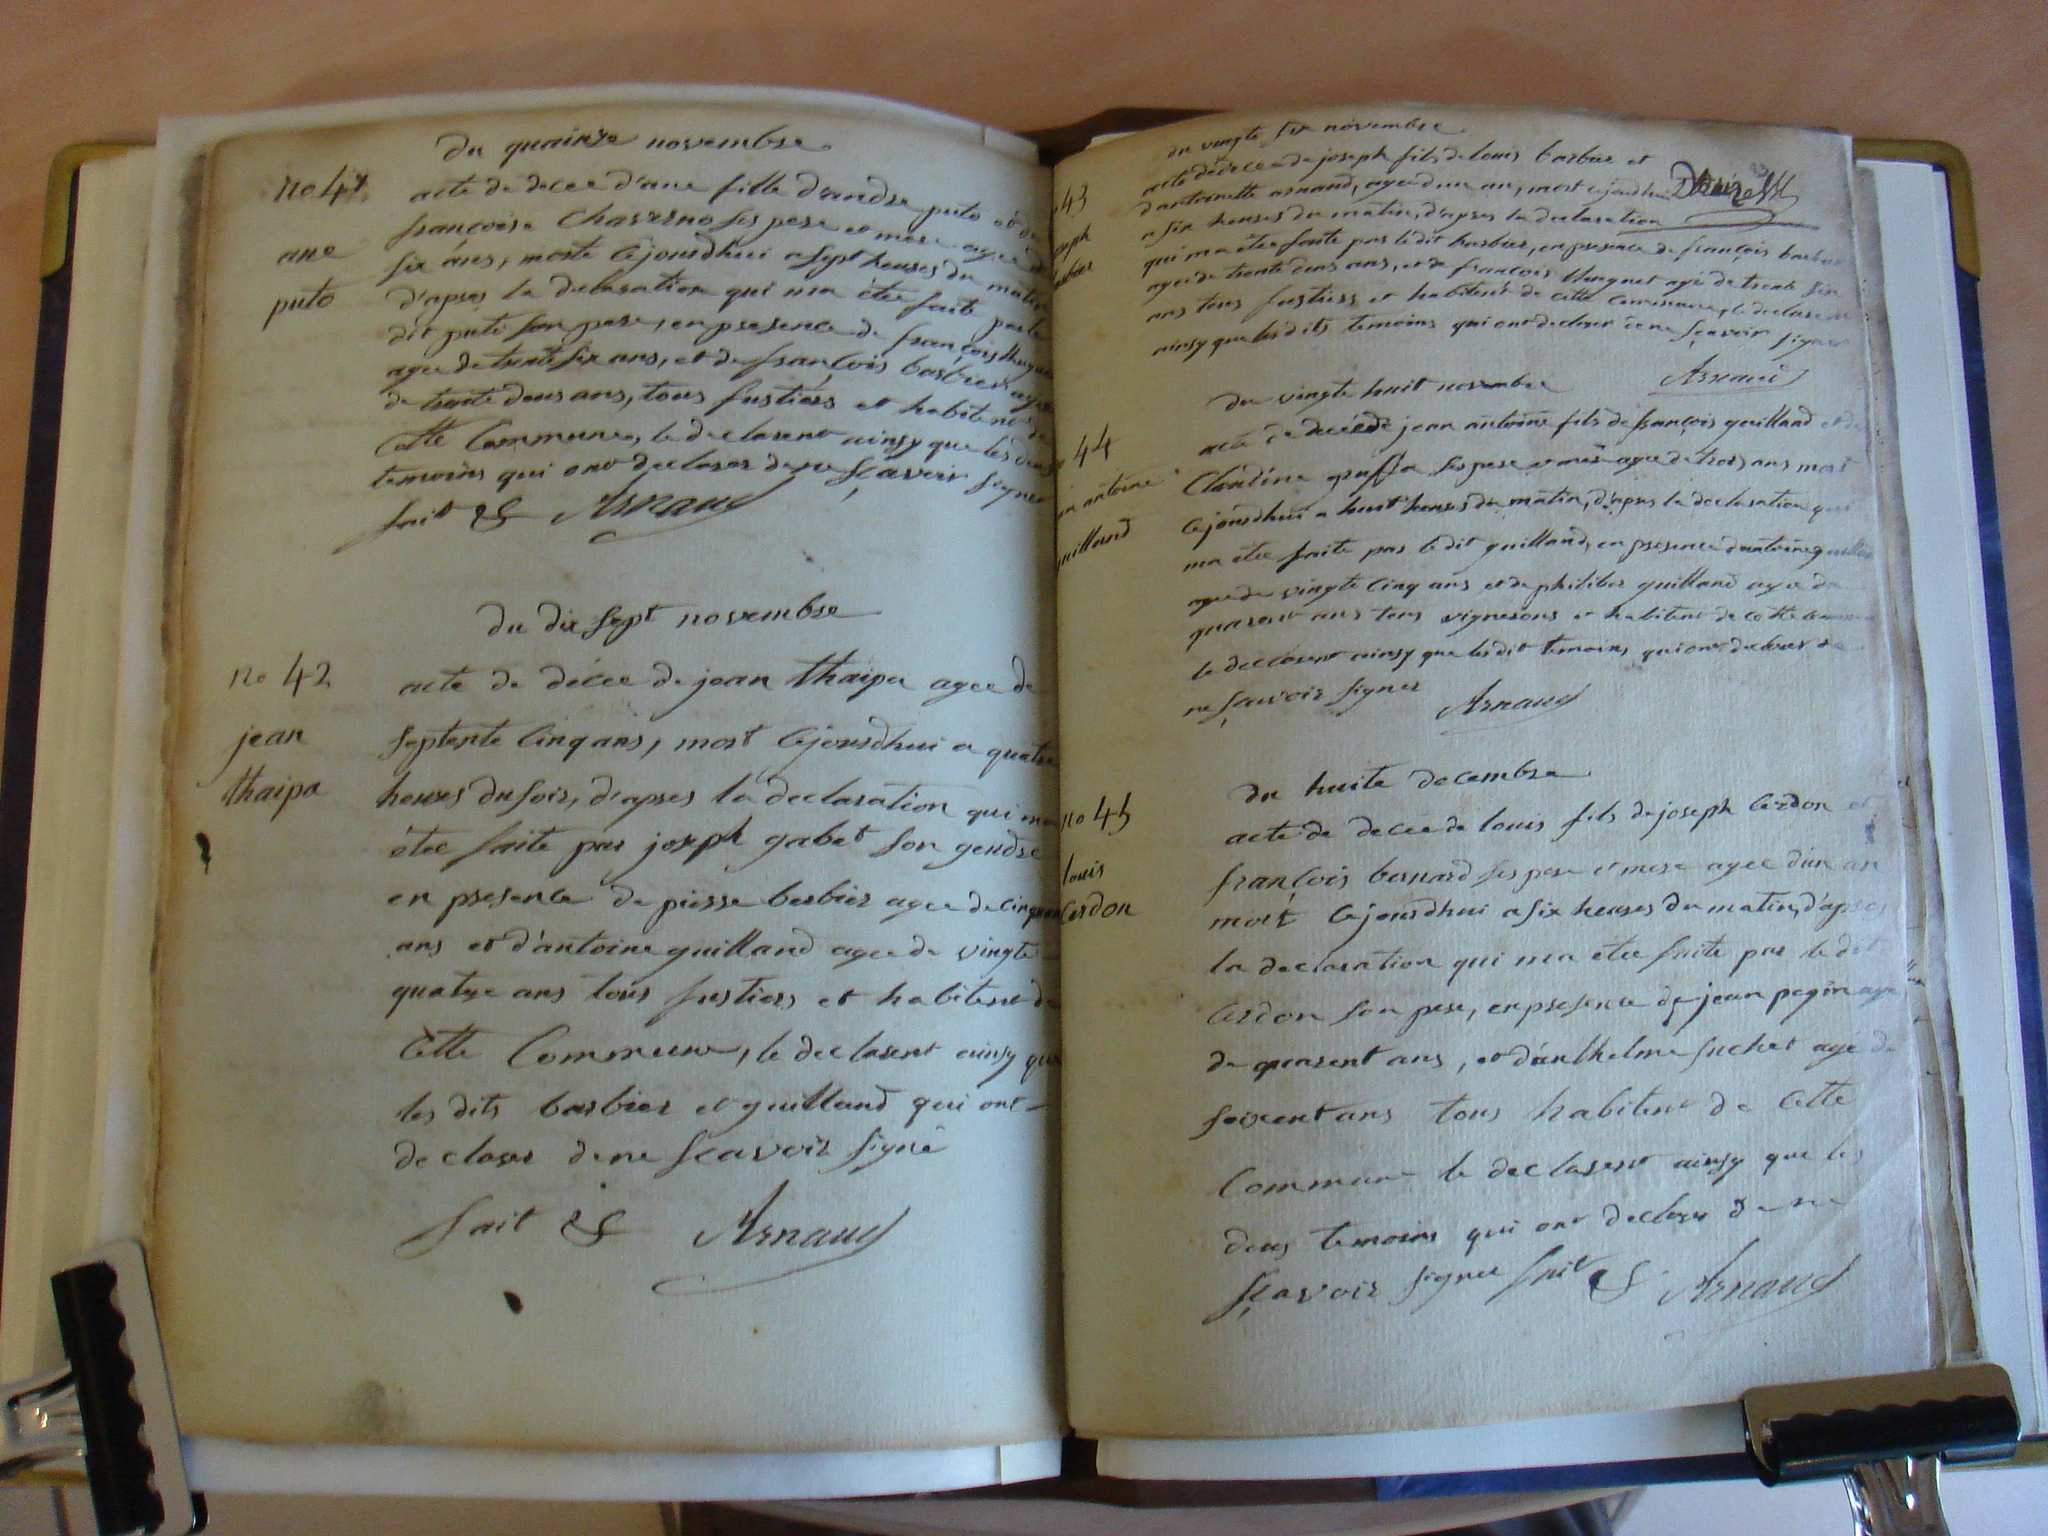 du quainze novembre
no 41
acte de décée d'ane fille d'andre puto et de
françoise Chaverno ses pere et mere agée de
ane
six ans, morte Cejourdhui a sept heures du matin
puto
d'apres la declaration qui ma étée faite par le
dit puto son pere, en presence de françois
agée de trente six ans, et de françois barbier agée
de trente deus ans, tous fustiers et habitent de
Cette Commune, le declarent ainsy que les deus
temoins qui ont declarer de ne sçavoir signer
fait & Arnaud
du dix sept novembre
no 42
acte de décée de jean thaipa agee de
jean
septente Cinq ans, mort Cejourdhui a quatre
thaipa
heures du soir, d'apres la declaration qui ma
étée faite par joseph gabet son gendre
en presence de pierre berbier agee de cinquante
ans et d'antoine guilland agee de vingte
quatre ans tous fustiers et habitent de
Cette Commune, le declarent ainsy que
les dits barbier et guilland qui ont
declarer de ne scavoir signé
fait & Arnaud
du vingte six novembre
43
acte de décée de joseph fils de louis barbier et
d'antoinette arnaud, agée d'un an, mort cejourdhui
a six heures du matin, d'apres la declaration
qui ma étée faite par ledit barbier, en presence de françois barbier
agée de trente deus ans, et de françois agé de trente six
ans tous fustiers et habitent de cette commune, le declarent
ainsy que lesdits temoins qui ont declarer de ne sçavoir signer
Arnaud
du vingte huit novembre
44
acte de decée de jean antoine fils de françois guilland et de
antoine
Claudine ses pere et mere agee de trois ans mort
guilland
Cejourdhui a huit heures du matin, d'apres la declaration qui
ma étée faite par ledit guilland, en presence d'antoine guilland
agee de vingte cinq ans et de philiber guilland agee de
quarent ans tous vignerons et habitent de cette commune
le declarent ainsy que lesdit temoins qui ont declarer de
ne sçavoir signer Arnaud
du huite decembre
no 45
acte de decée de louis fils de joseph Cerdon et
louis
françois bernard ses pere et mere agee d'un an
Cerdon
mort Cejourdhui a six heures du matin, d'apres
la declaration qui ma étée faite par le dit
Cerdon son pere, en presence de jean pegin agée
de quarent ans, et d'anthelme suchet agé de
soixent ans tous habitent de Cette
Commune le declarent ainsy que les
deus temoins qui ont declarer de ne
sçavoir signer fait & Arnaud